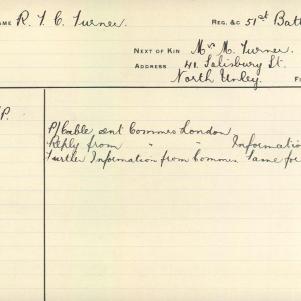 NAME R. T. C. Turner. REG. &C 51st Batt
NEXT OF KIN Mrs M. Turner.
ADDRESS 41. Salisbury St.
North Unley. F
P. P/Cable sent Commrs London
Reply from " " Informatio
Further Information from Commrs Same for